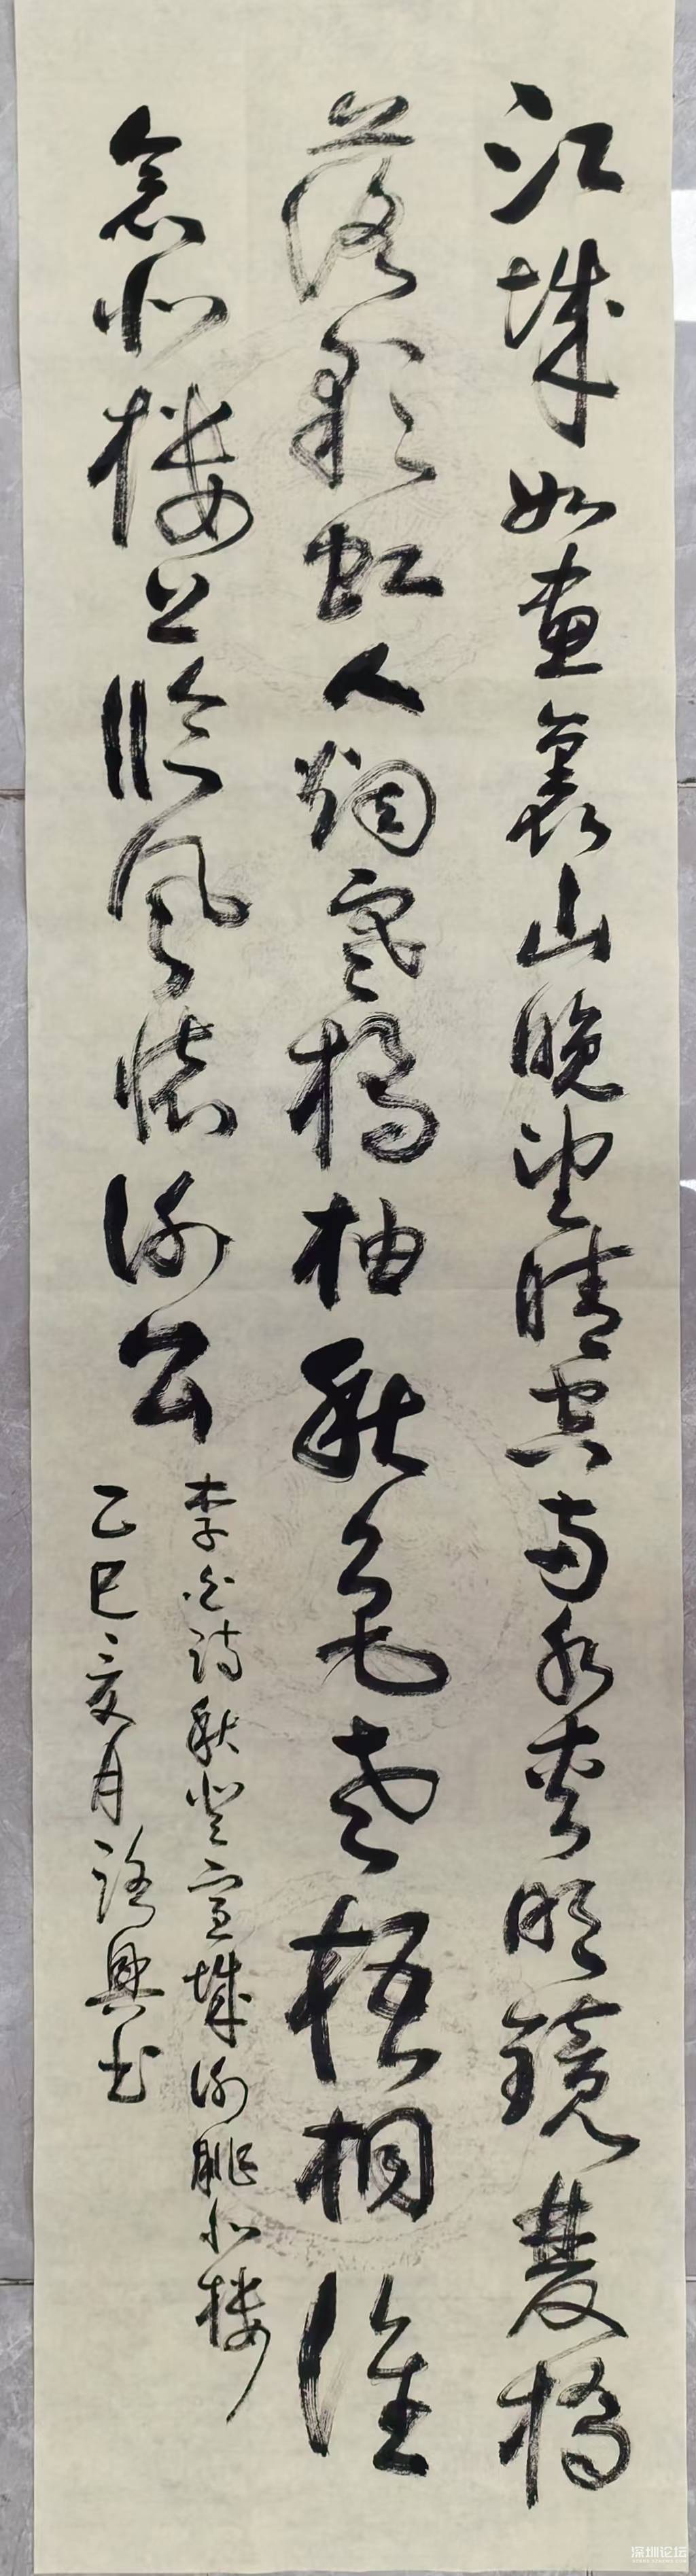 江城如画裏山晚望晴空两水夹明镜雙橋
落彩虹人烟寒橘柚秋色老梧桐谁
念北楼上临风怀谢公
李白诗秋登宣城谢朓北楼
乙巳亥月 兴书
深圳论坛